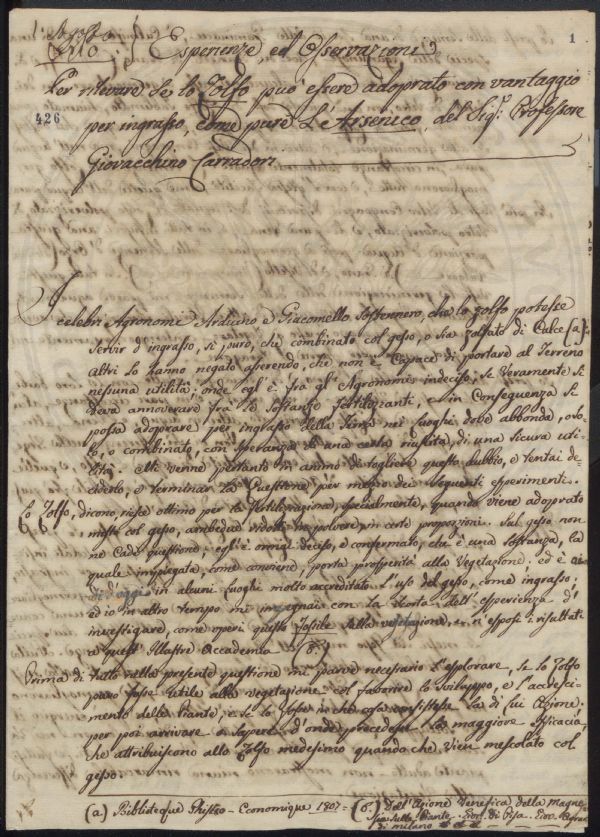 1. Agosto
1810.
1
Esperienze, ed Osservazioni
Per rilevare se lo Zolfo può essere adoprato con vantaggio
426
per ingrasso, come pure L'Arsenico, del Sig.r Professore
Giovacchino Carradori
I celebri Agronomi Arduino e Giacomello sostennero, che lo zolfo potesse
servir d'ingrasso, sì puro, che combinato col gesso, o sia solfato di Calce (a):
altri lo hanno negato asserendo, che non è Capace di portare al Terreno
nessuna utilità; onde egl'è fra gl'Agronomi indeciso, se Veramente si
deva annoverare fra le sostanze fertilizzanti, e in Conseguenza se
possa adoprare per ingrasso della Terra nei luoghi dove abbonda, o so-
lo, o combinato, con speranza di una certa riuscita, di una sicura uti-
lità. Mi venne pertanto in animo di togliere questo dubbio, e tentai de-
ciderlo, e terminar la Questione per mezzo dei seguenti esperimenti.
Lo Zolfo, dicono, riesce ottimo per la fertilizzazione, specialmente, quando viene adoprato
misto col gesso, ambedue ridotti in polvere, in certe proporzioni. Sul gesso non
ne Cade questione; egl'è ormai deciso, e confermato, che è una sostanza, la
quale impiegata, come conviene, porta prosperità alla Vegetazione; ed è
dì d'oggi in alcuni luoghi molto accreditato l'uso del gesso, come ingrasso;
ed io in altro tempo mi ingegnai con la scorta dell'esperienza d'
investigare, come operi questo fossile sulla vegetazione, e n'esposi i risultati
a quest'Illustre Accademia (b).
Prima di tutto nella presente questione mi parve necessario l'esplorare, se lo Zolfo
puro fosse utile alla vegetazione col favorire lo sviluppo, e l'accresci-
mento delle Piante, e se lo fosse in che cosa consistesse la di lui Azione,
per poi arrivare a sapere d'onde procedesse la maggiore efficacia,
che attribuiscono allo Zolfo medesimo quando che vien mescolato col
gesso.
(a) Biblioteque Phisico-Economique 1807 = (b) Dell'Azione Venefica della Magne-
sia sulle Piante. Gior. di Pisa. Gior.
di Milano